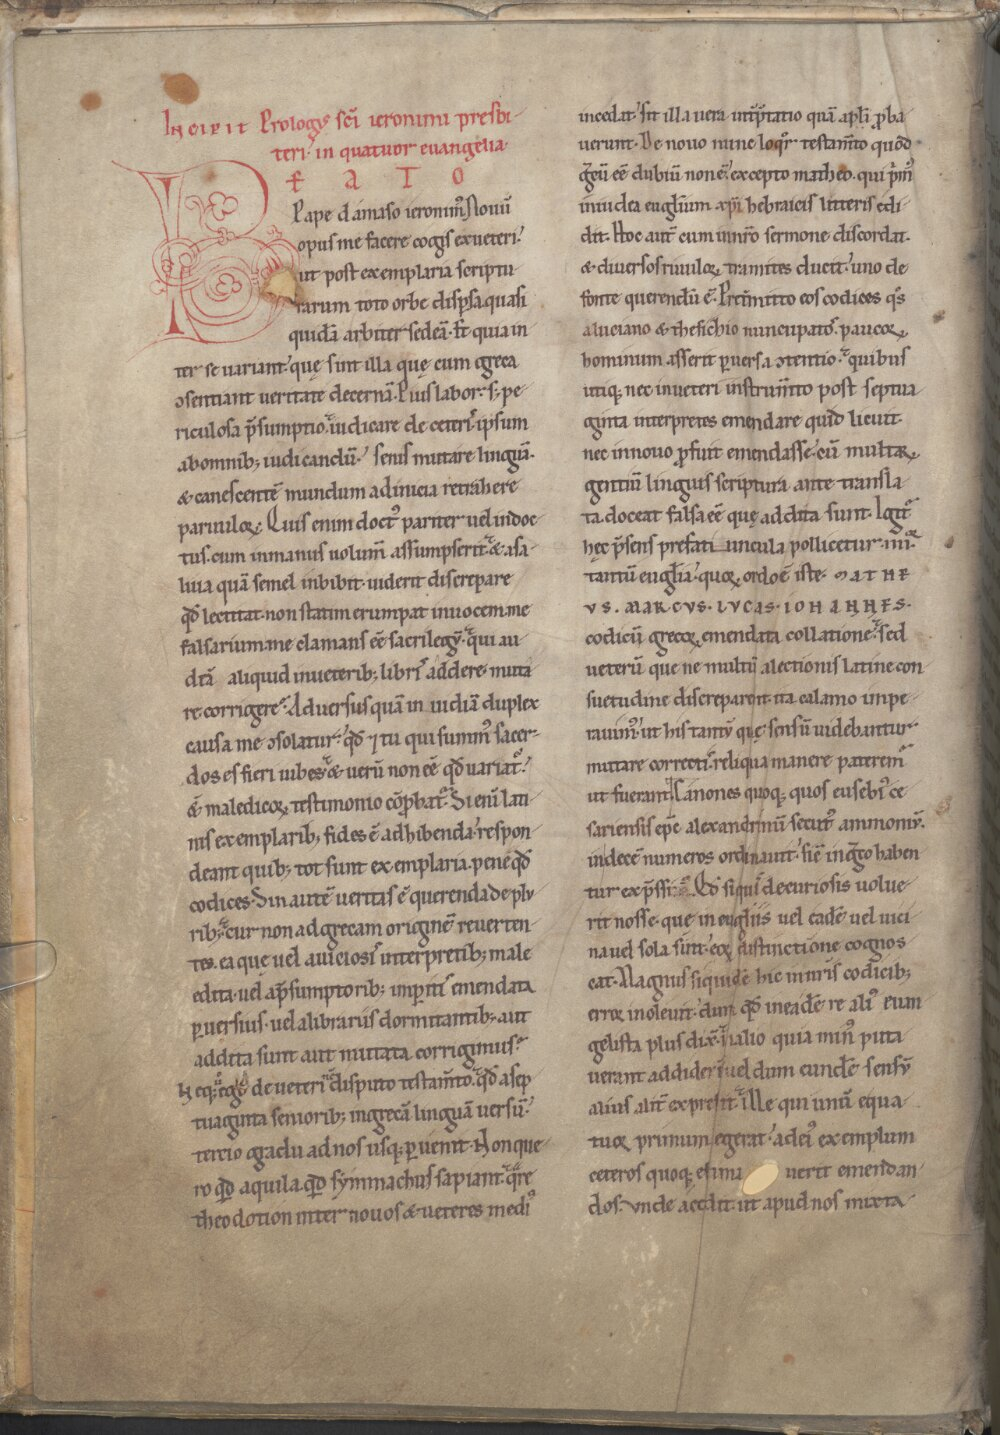 Incipit Prologꝰ sc̄i ieronimi presbi-
teri in quatuor euangelia.
B E A T O
Pape damaso ieronimꝰ. Nouū
opus me facere cogis ex ueteri.
ut post exemplaria scriptu
rarum toto orbe dispsa quasi
quidā arbiter sedeā. Et quia in
ter se uariant. quę sint illa quę cum greca
ꝯsentiant ueritate decernā. Pius labor. s; pe
riculosa p̄sumptio. iudicare de ceteri ipsum
ab omnib; iudicandū. senis mutare linguā.
& canescentē mundum ad inicia retrahere
paruuloꝝ. Quis enim doctꝰ pariter uel indoc
tus. cum in manus uolum̄ assumpserit. & a sa
liua quā semel inbibit. uiderit discrepare
qđ lectitat. non statim erumpat in uocem. me
falsarium. me clamans eē sacrilegū. qui au
deā aliquid in ueterib; libris addere. muta
re. corrigere. Aduersus quā inuidiā duplex
causa me ꝯsolatur. qđ ⁊ tu qui summꝰ sacer-
dos es fieri iubes. & uerū non eē qđ uariat.
& maledicoꝝ testimonio cōprobat. Si enī lati
nis exemplarib; fides ē adhibenda. respon
deant quib; tot sunt exemplaria pene qđ
codices. Sin autē ueritas ē querenda de plu
rib; cur non ad grecam originē reuerten
tes. ea que uel a uiciosi interpretib; male
edita. uel a p̄sumptorib; imperitis emendata
ꝑuersius. uel a librariis dormitantib; aut
addita sunt aut mutata corrigimus.
Neq; ego de ueteri disputo testam̄to. qđ a sep
tuaginta seniorib; in grecā linguā uersū.
tercio gradu ad nos usq; ꝑuenit. Non que
ro qđ aquila. qđ symmachus sapiant. q̄re
theodotion inter nouos & ueteres medi
incedat. sit illa uera int̄p̄tatio quā apl̄i ꝓba
uerunt. De nouo nunc loqr̄ testam̄to quod
grecū eē dubiū non ē. excepto matheo. qui p̄mꝰ
in iudea euglīum xp̄i hebraicis litteris edi
dit. Hoc aut̄ cum in nr̄o sermone discordat.
& diuersos riuuloꝝ tramites ducit. uno de
fonte querendū ē. Pretmitto eos codices qs̄
a luciano & hesichio nuncupatos. paucoꝝ
hominum asserit ꝑuersa ꝯtentio. quibus
utiq; nec in ueteri instrum̄to post septua
ginta interpretes emendare quid licuit.
nec in nouo ꝓfuit emendasse. cū multaꝝ
gentiū linguis scriptura ante transla
ta. doceat falsa eē quę addita sunt. Igit
hęc p̄sens prefatiuncula pollicetur. iiiior.
tantū euglīa. quoꝝ ordo ē iste. MATHE
VS. MARCVS. LVCAS. IOHANNES.
codicū grecoꝝ emendata collatione. sed
ueterū. que ne multū a lectionis latine con
suetudine discreparent. ita calamo inpe
rauimꝰ. ut his tantū que sensū uidebantur
mutare correctis. reliqua manere pateremꝰ
ut fuerant. Canones quoq; quos eusebiꝰ ce
sariensis ep̄c alexandrinū secutꝰ ammoniū.
in decē numeros ordinauit. sic̄ in gr̄co haben
tur expssimꝰ. Qđ si quis de curiosis uolue
rit nosse. que in euglīis uel eadē uel uici
na uel sola sint. eoꝝ distinctione cognos
cat. Magnus siquidē hic in nr̄is codicib;
error inoleuit. dum qđ in eadē re aliꝰ euan
gelista plus dix̄. in alio quia minꝰ puta
uerant addiderint. uel dum eundē sensū
alius alit̄ expressit. ille qui unū e qua
tuor primum legerat. ad eiꝰ exemplum
ceteros quoq; estimauerit emendan
dos. Vnde accidit. ut apud nos mixta